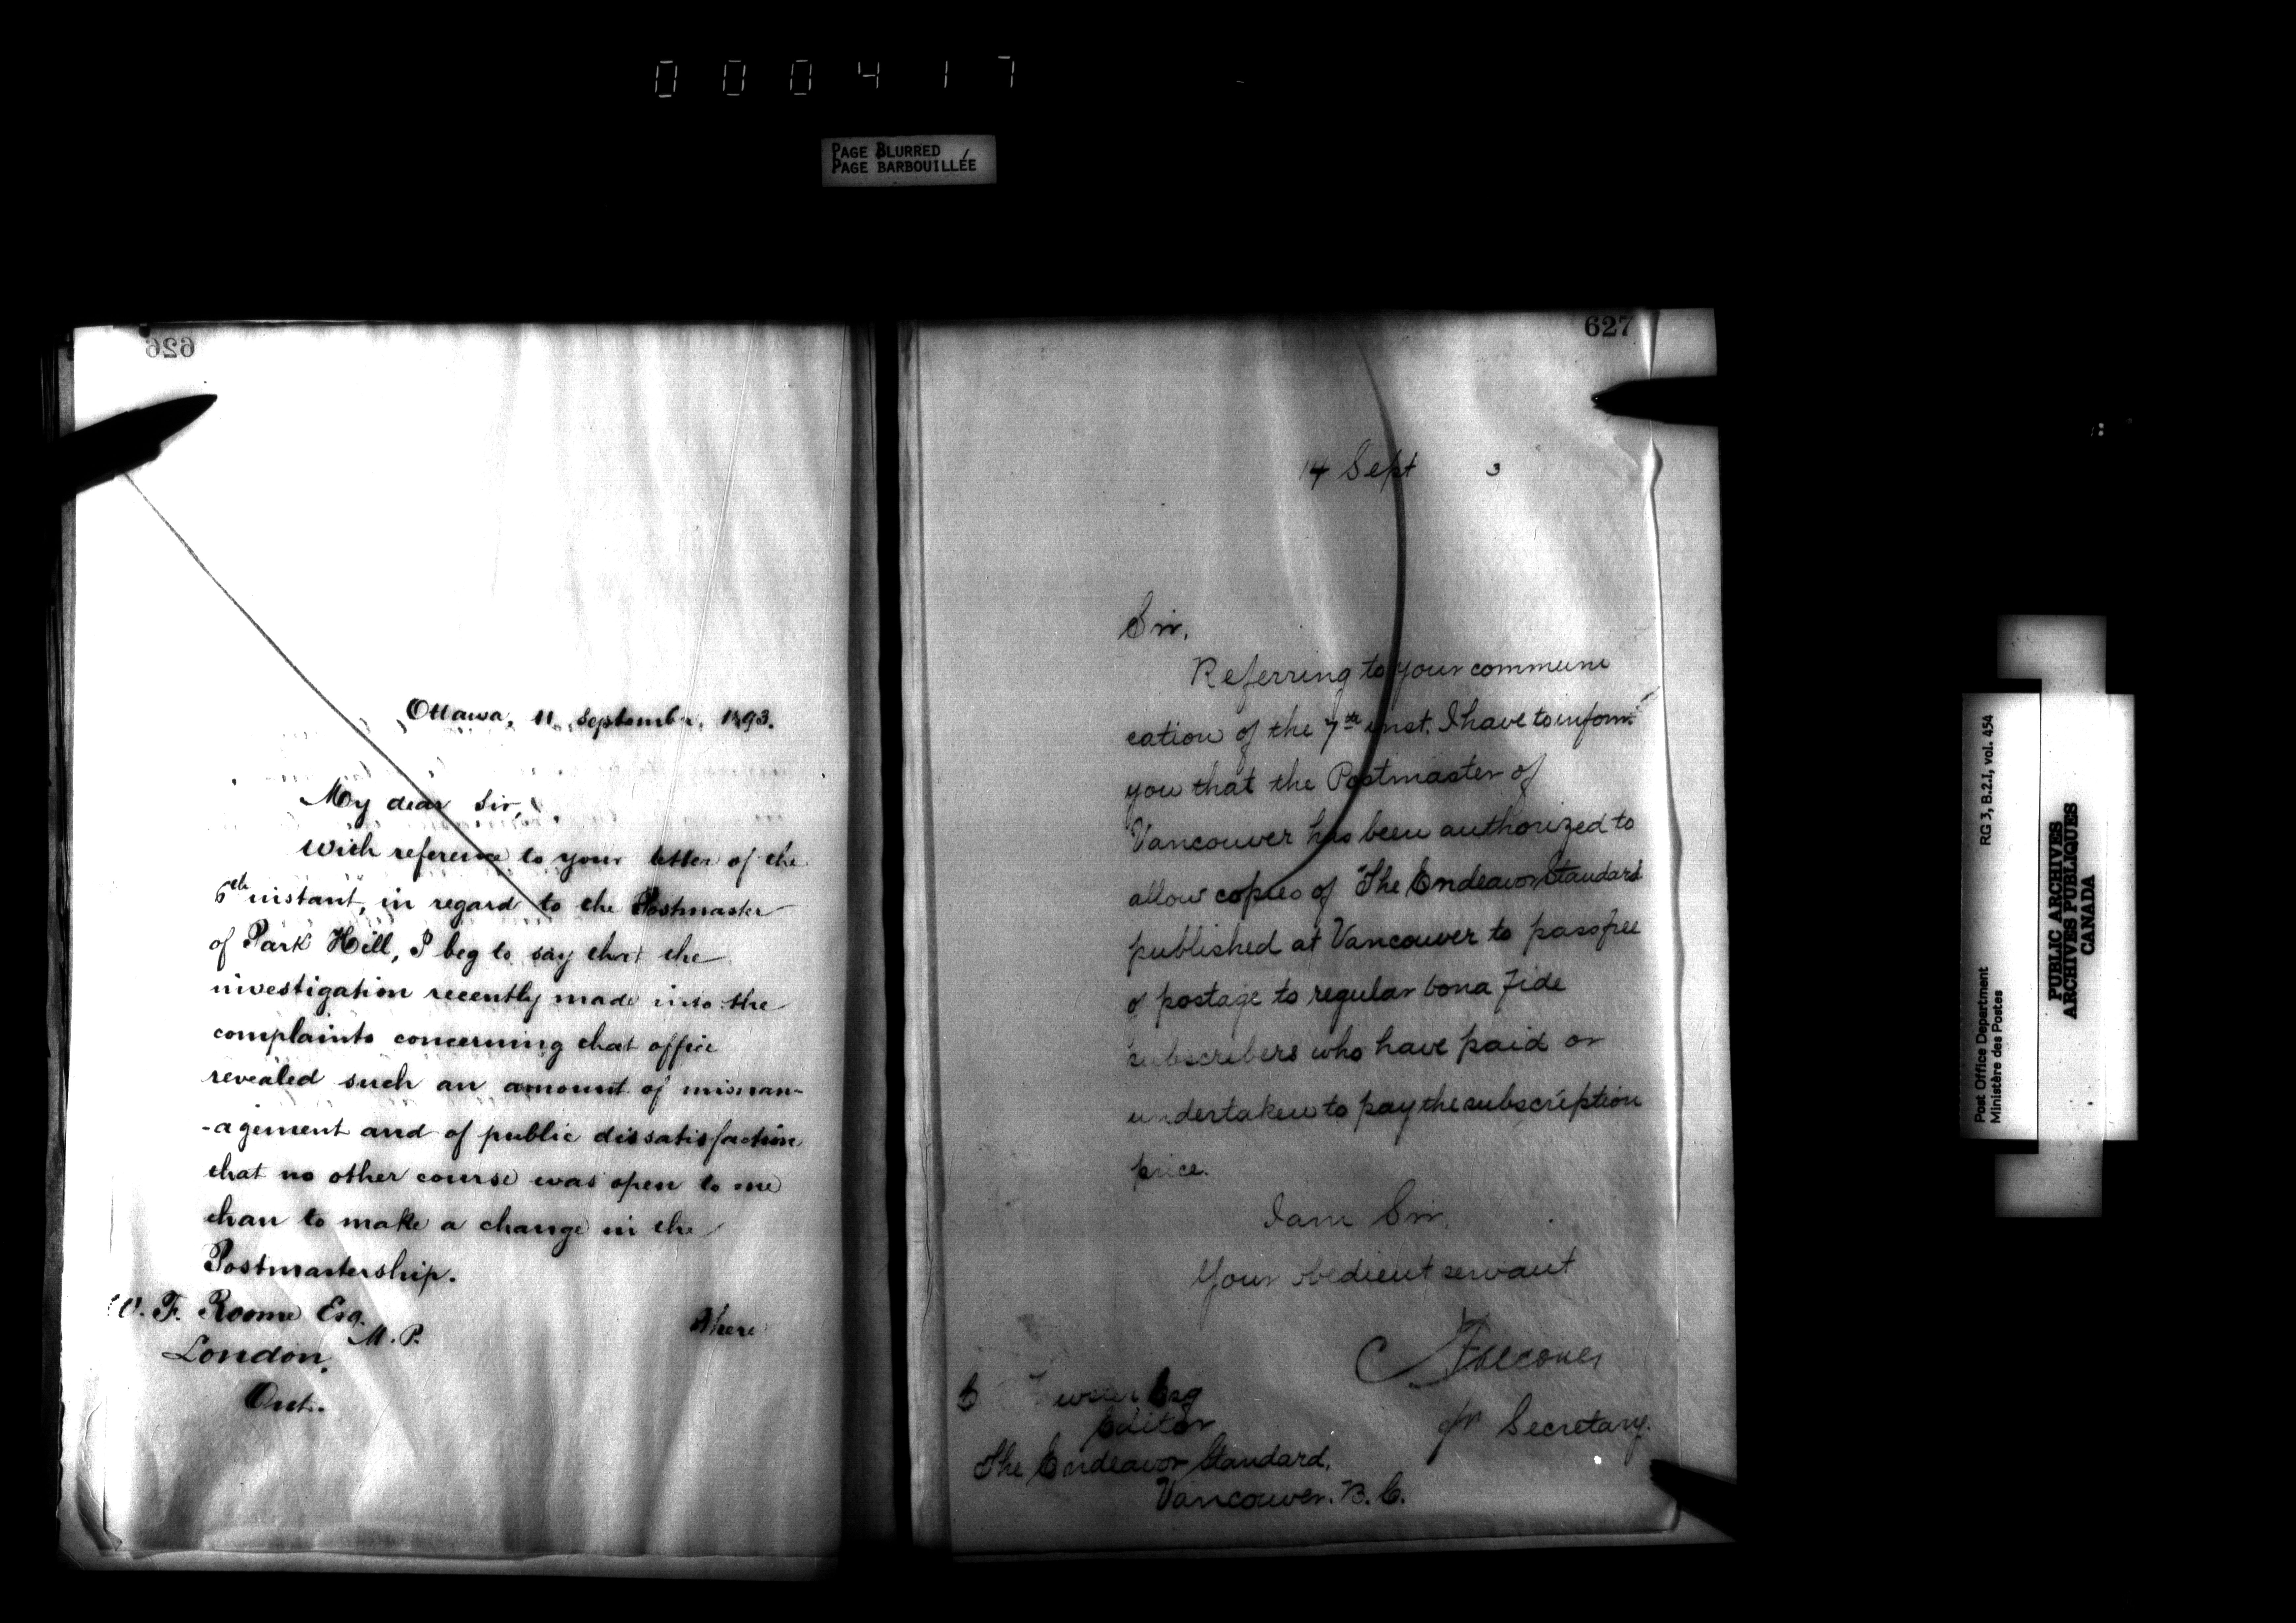 000417
PAGE BLURRED
PAGE BARBOUILLÉE
626
Ottawa, 11 September, 1893.
My dear Sir,
With reference to your letter of the
6th instant, in regard to the Postmaster
of Park Hill, I beg to say that the
investigation recently made into the
complaints concerning that office
revealed such an amount of misman-
-agement and of public dissatisfaction
that no other course was open to me
than to make a change in the
Postmastership.
W. F. Roome Esq.
M. P.
London,
Ont.
There
627
14 Sept 3
Sir,
Referring to your communi
cation of the 7th inst. I have to inform
you that the Postmaster of
Vancouver has been authorized to
allow copies of The Endeavor Standard
published at Vancouver to pass free
of postage to regular bona fide
subscribers who have paid or
undertaken to pay the subscription
price.
I am Sir,
Your obedient servant
C Falconer
for Secretary.
Esq
Editor
The Endeavor Standard,
Vancouver. B. C.
Post Office Department
Ministère des Postes
RG 3, B.2.I, vol. 454
PUBLIC ARCHIVES
ARCHIVES PUBLIQUES
CANADA